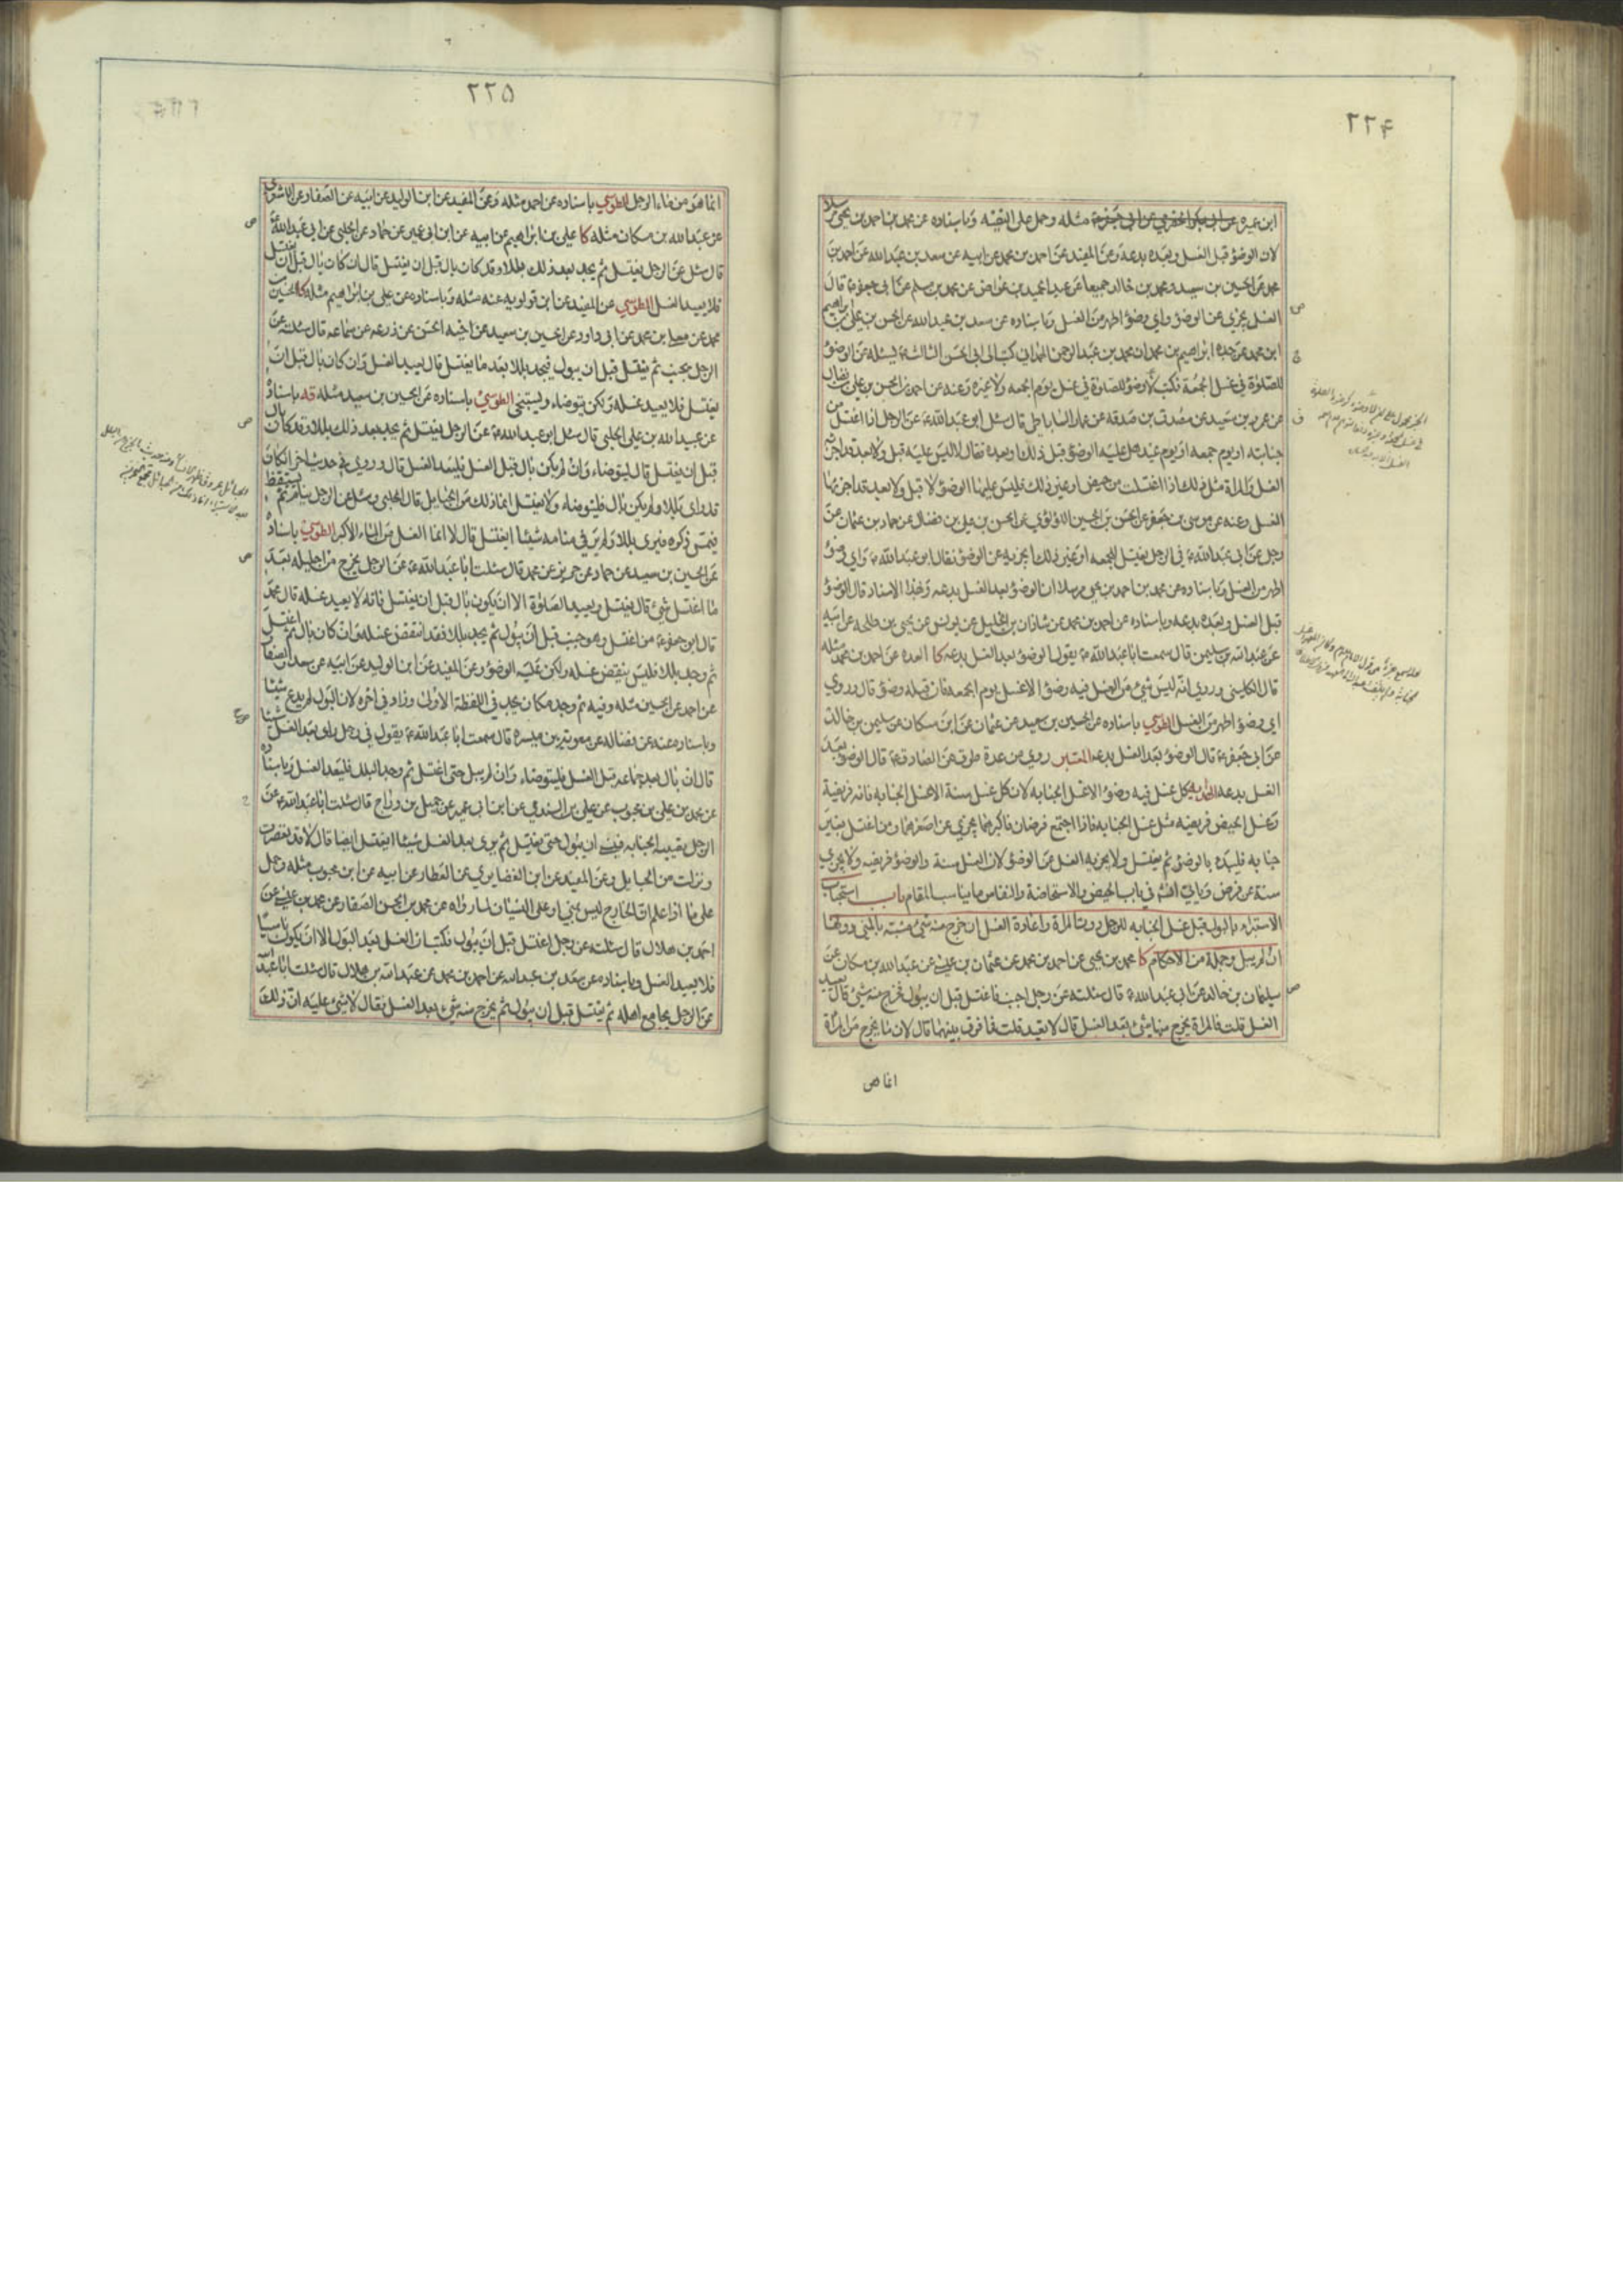 ٢٢۴
ابن عميرة عن ابى بكر الحضرمي عن ابى جعفر ع مثله وحمل على التقيّه وباسناده عن محمد بن احمد بن يحيى مرسلا
لان الوضوء قبل الغسل وبعده بدعة وعن المفيد عن احمد بن محمد عن ابيه عن سعد بن عبد الله عن احمد بن
محمد عن الحسين بن سعيد ومحمد بن خالد جميعا عن عبد الحميد بن عواض عن محمد بن مسلم عن ابى جعفر ع قال
الغسل يجزي عن الوضوء واي وضوء اطهر من الغسل وباسناده عن سعد بن عبد الله عن الحسن بن علي بن ابراهيم
ابن محمد عن جده ابراهيم بن محمد ان محمد بن عبد الرحمن الهمداني كتب الى ابى الحسن الثالث ع يسئله عن الوضوء
للصلوة في غسل الجمعة فكتب لا وضوء للصلوة في غسل يوم الجمعه ولا غيره وعنه عن احمد بن الحسن بن علي بن فضال
عن عمرو بن سعيد عن مصدق بن صدقه عن عمار الساباطي قال سئل ابو عبد الله ع عن الرجل اذا اغتسل من
جنابته او يوم جمعه او يوم عيد هل عليه الوضوء قبل ذلك او بعده فقال لا ليس عليه قبل ولا بعد قد اجزئه
الغسل والمراة مثل ذلك اذا اغتسلت من حيض او غير ذلك فليس عليها الوضوء لا قبل ولا بعد قد اجزئها
الغسل وعنه عن موسى بن جعفر عن الحسن بن الحسين اللؤلؤي عن الحسن بن علي بن فضال عن حماد بن عثمان عن
رجل عن ابى عبد الله ع في الرجل يغتسل للجمعه او غير ذلك ايجزيه عن الوضوء فقال ابو عبد الله ع واي وضوء
اطهر من الغسل وباسناده عن محمد بن احمد بن يحيى مرسلا ان الوضوء بعد الغسل بدعه وبهذا الاسناد قال الوضوء
قبل الغسل وبعده بدعه وباسناده عن احمد بن محمد عن شاذان بن الخليل عن يونس عن يحيى بن طلحه عن ابيه
عن عبد الله بن سليمن قال سمعت ابا عبد الله ع يقول الوضوء بعد الغسل بدعه كا العده عن احمد بن محمد مثله
قال الكليني وروي انه ليس شيء من الغسل فيه وضوء الا غسل يوم الجمعه فان قبله وضوء قال وروي
اي وضوء اطهر من الغسل الطوسي باسناده عن الحسين بن سعيد عن عثمان عن ابن مسكان عن سليمن بن خالد
عن ابى جعفر ع قال الوضوء بعد الغسل بدعه المعتبر روي من عدة طرق عن الصادق ع قال الوضوء بعد
الغسل بدعه كل غسل فيه وضوء الا غسل الجنابه لان كل غسل سنة الا غسل الجنابه فانه فريضة
وغسل الحيض فريضه مثل غسل الجنابه فاذا اجتمع فرضان فاكبرهما يجزي عن اصغرهما ومن اغتسل بغير
جنابه فليبده بالوضوء ثم يغتسل ولا يجزيه الغسل عن الوضوء لان الغسل سنة والوضوء فريضه ولا يجزي
سنة عن فرض وياتي انشاء في باب الحيض والاستحاضة والنفاس ما يناسب المقام باب استحباب
الاستبراء بالبول قبل غسل الجنابه للرجل دون المراة واعادة الغسل ان خرج منه شيء مشتبه بالمني
ان لم يبل وجملة من الاحكام كا محمد بن يحيى عن احمد بن محمد عن عثمان بن عيسى عن عبد الله بن مسكان عن
سليمان بن خالد عن ابى عبد الله ع قال سئلته عن رجل اجنب فاغتسل قبل ان يبول فخرج منه شيء قال يعيد
الغسل قلت فالمراة يخرج منها شيء بعد الغسل قال لا يعيد قلت فما فرق بينهما قال لان ما يخرج من المراة
انما هو
٢٢۵
انما هو من ماء الرجل الطوسي باسناده عن احمد مثله وعن المفيد عن ابن الوليد عن ابيه عن الصفار عن الاشعري
عن عبد الله بن مسكان مثله كا علي بن ابراهيم عن ابيه عن ابن ابى عمير عن حماد عن الحلبي عن ابى عبد الله ع
قال سئل عن الرجل يغتسل ثم يجد بعد ذلك بللا وقد كان بال قبل ان يغتسل قال ان كان بال قبل ان يغتسل
فلا يعيد الغسل الطوسي عن المفيد عن ابن قولويه عنه مثله وباسناده عن علي بن ابراهيم مثله كا الحسين بن
محمد عن معلى بن محمد عن ابى داود عن الحسين بن سعيد عن اخيه الحسن عن زرعه عن سماعه قال سئلته عن
الرجل يجنب ثم يغتسل قبل ان يبول فيجد بللا بعد ما يغتسل قال يعيد الغسل وان كان بال قبل ان
يغتسل فلا يعيد غسله ولكن يتوضاء ويستنجى الطوسي باسناده عن الحسين بن سعيد مثله فه باسناده
عن عبيد الله بن علي الحلبي قال سئل ابو عبد الله ع عن الرجل يغتسل ثم يجد بعد ذلك بللا وقد كان بال
قبل ان يغتسل قال ليتوضاء وان لم يكن بال قبل الغسل فليعد الغسل قال وروي في حديث اخر ان كان
قد راى بللا ولم يكن بال فليتوضاء ولا يغتسل انما ذلك من الحبايل قال الحلبي وسئل عن الرجل ينام ثم يستيقظ
فيمس ذكره فيرى بللا ولم ير في منامه شيئا ايغتسل قال لا انما الغسل من الماء الاكبر الطوسي باسناده
عن الحسين بن سعيد عن حماد عن حريز عن محمد قال سئلت ابا عبد الله ع عن الرجل يخرج من احليله بعد
ما اغتسل شيء قال يغتسل ويعيد الصلوة الا ان يكون بال قبل ان يغتسل فانه لا يعيد غسله قال محمد
قال ابو جعفر ع من اغتسل وهو جنب قبل ان يبول ثم يجد بللا فقد انتقض غسله وان كان بال ثم اغتسل
ثم وجد بللا فليس ينقض غسله ولكن عليه الوضوء وعن المفيد عن ابن الوليد عن ابيه عن سعد والصفار
عن احمد عن الحسين مثله وفيه ثم وجد مكان يجد في اللفظة الاولى وزاد في اخره لان البول لم يدع شيئا
وباسناده عنه عن فضاله عن معوية بن ميسره قال سمعت ابا عبد الله ع يقول في رجل راى بعد الغسل شيئا
قال ان بال بعد جماعه قبل الغسل فليتوضاء وان لم يبل حتى اغتسل ثم وجد البلل فليعد الغسل وباسناده
عن محمد بن علي بن محبوب عن علي بن السندي عن ابن ابى عمير عن جميل بن دراج قال سئلت ابا عبد الله ع عن
الرجل تصيبه الجنابه فينسى ان يبول حتى يغتسل ثم يرى بعد الغسل شيئا ايغتسل ايضا قال لا قد تعصرت
ونزلت من الحبايل وعن المفيد عن ابن الغضايري عن العطار عن ابيه عن ابن محبوب مثله وحمل
على ما اذا علم ان الخارج ليس بمني او على النسيان لما رواه عن محمد بن الحسن الصفار عن محمد بن عيسى عن
احمد بن هلال قال سئلته عن رجل اغتسل قبل ان يبول فكتب ان الغسل بعد البول الا ان يكون ناسيا
فلا يعيد الغسل وباسناده عن سعد بن عبد الله عن احمد بن محمد عن عبد الله بن هلال قال سئلت ابا عبد الله
عن الرجل يجامع اهله ثم يغتسل قبل ان يبول ثم يخرج منه شيء بعد الغسل فقال لا شيء عليه ان ذلك